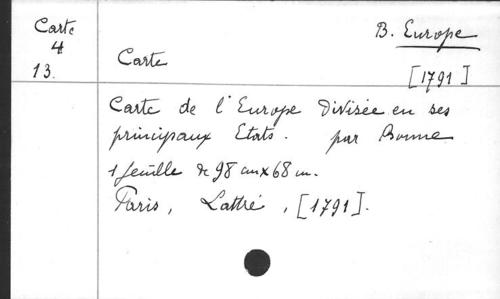 Carte
4
13.
B. Europe
Carte
[1791]
Carte de l'Europe Divisée en ses
principaux Etats. par Bonne
1 feuille de 98 cm x 68 cm.
Paris, Lattré, [1791].